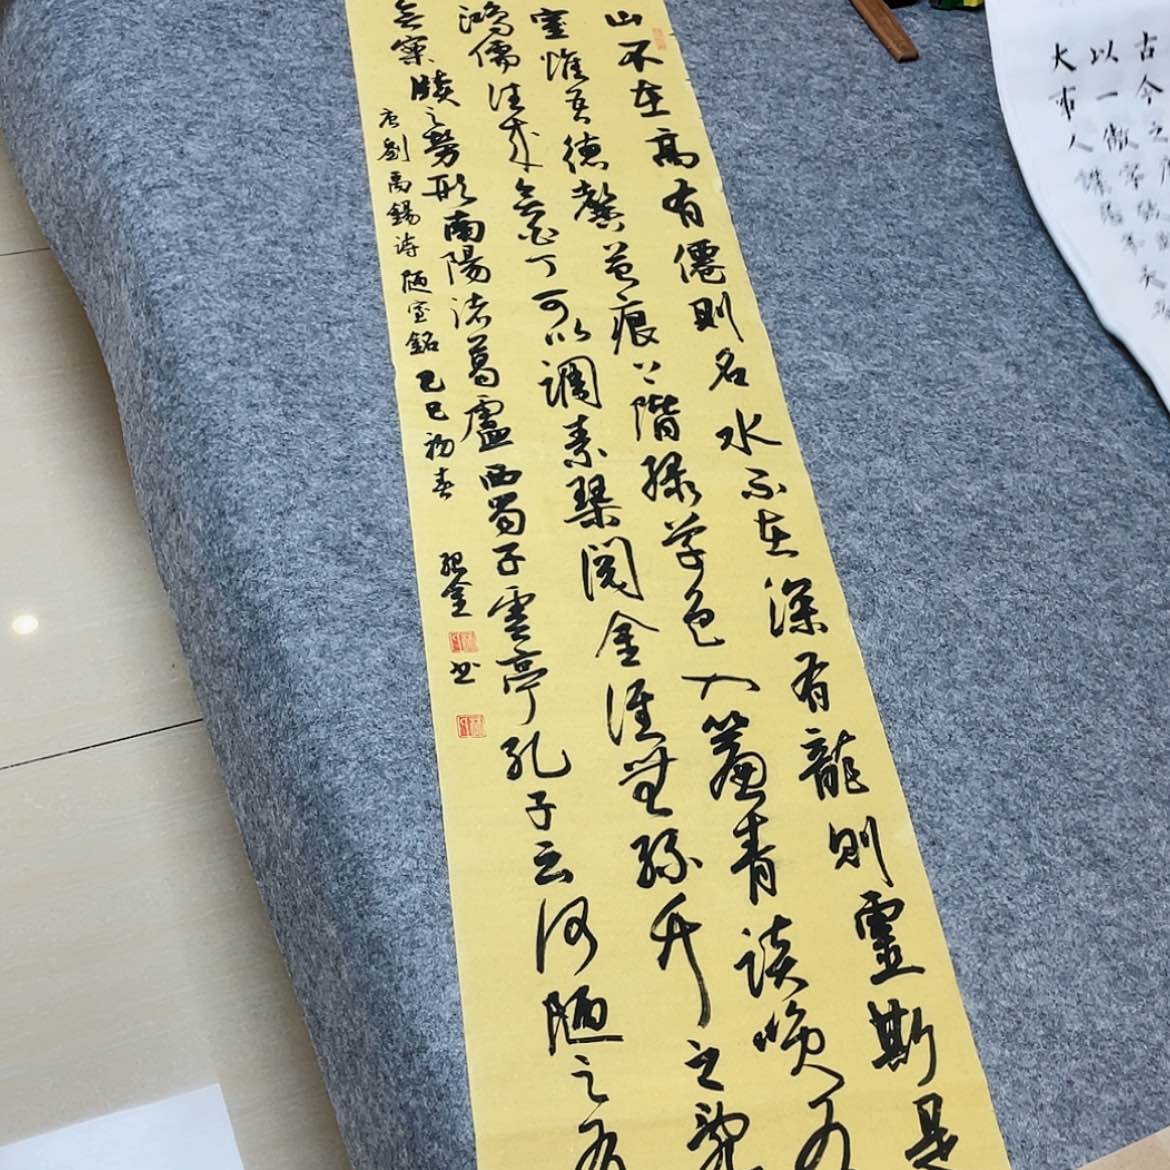 古今之
以一儆
大事人
山不在高有僊則名水不在深有龍則靈斯是
室惟吾德馨苔痕上階綠草色入簾青談咲有
鴻儒往来無白丁可以調素琴閱金經無絲竹之亂
無案牘之勞形南陽諸葛廬西蜀子雲亭孔子云何陋之有
唐劉禹錫詩陋室銘 己巳初春 金书